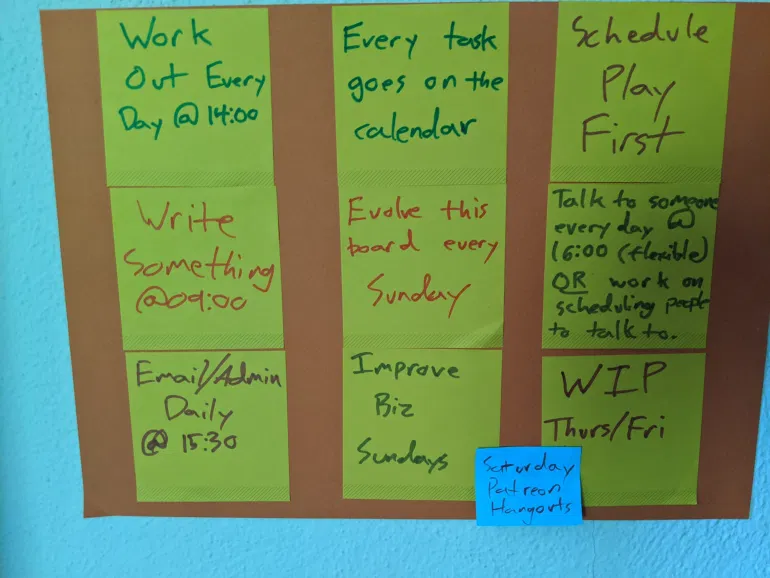 Work
Out Every
Day @ 14:00
Every task
goes on the
calendar
Schedule
Play
First
Write
Something
@09:00
Evolve this
board every
Sunday
Talk to someone
every day @
16:00 (flexible)
OR work on
scheduling people
to talk to.
Email/Admin
Daily
@ 15:30
Improve
Biz
Sundays
WIP
Thurs/Fri
Saturday
Patreon
Hangouts